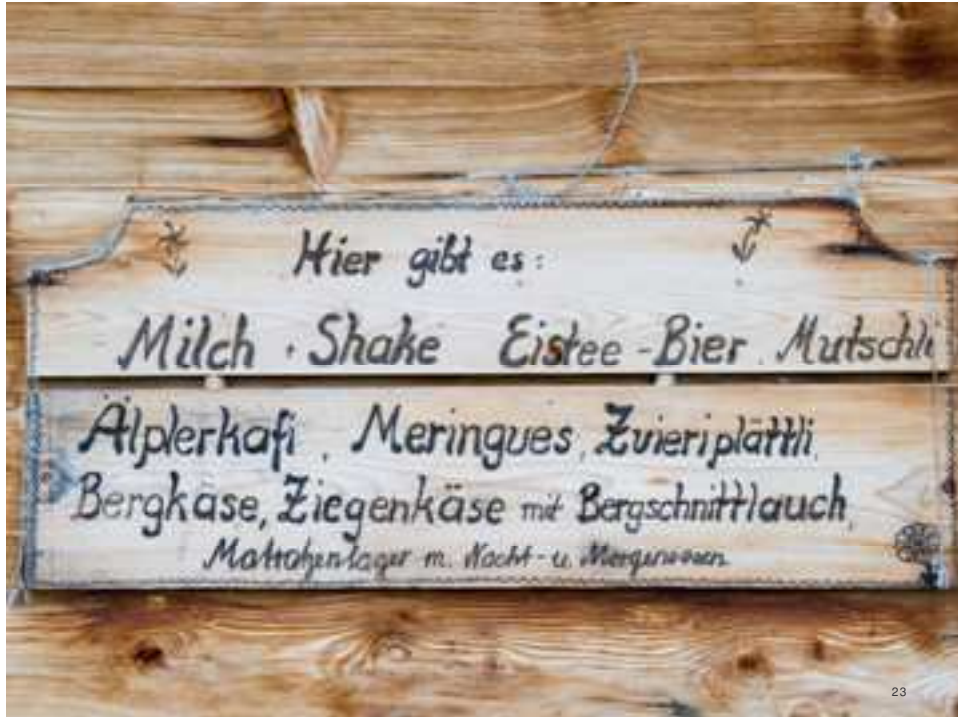 Hier gibt es:
Milch . Shake Eistee - Bier . Mutschli
Älplerkafi , Meringues , Zvieriplättli ,
Bergkäse, Ziegenkäse mit Bergschnittlauch,
Matratzenlager m. Nacht- u. Morgenessen
23